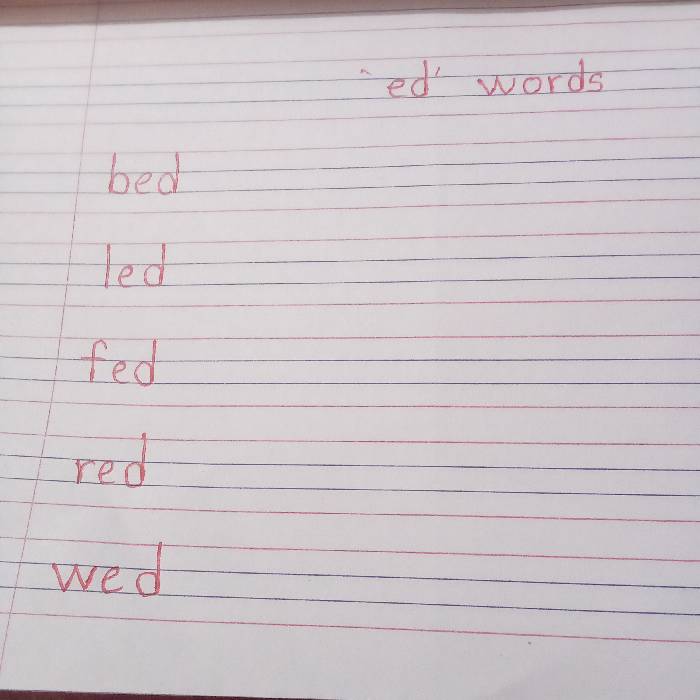 'ed' words
bed
led
fed
red
wed